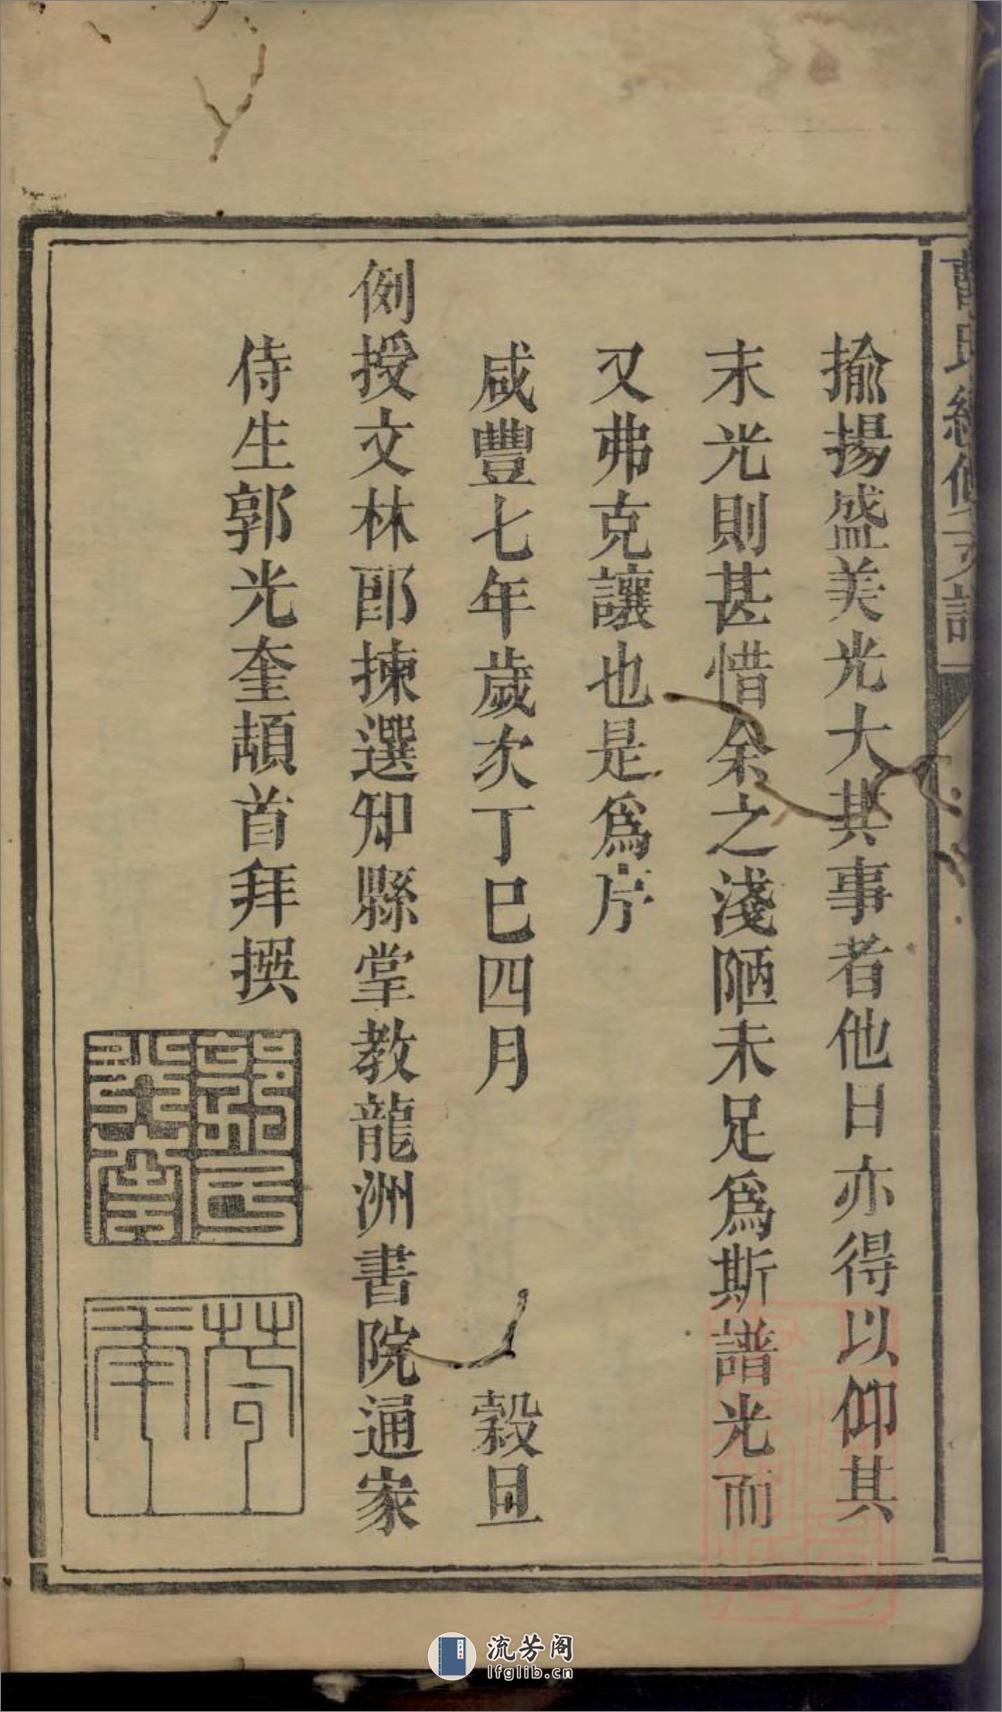 揄揚盛美光大其事者他日亦得以仰其
末光則甚惜余之淺陋未足爲斯譜光而
又弗克讓也是爲序
咸豐七年歲次丁巳四月 穀旦
例授文林郎揀選知縣掌教龍洲書院通家
侍生郭光奎頓首拜撰
流芳阁
lfglib.cn